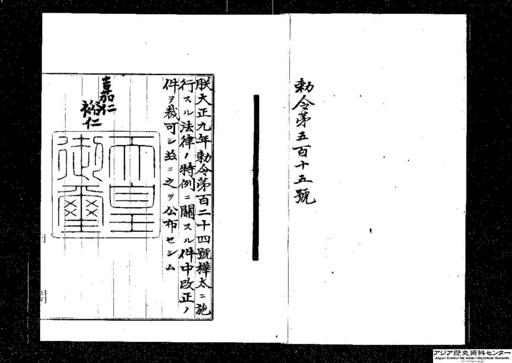 勅令第五百十五號
朕大正九年勅令第百二十四號樺太ニ施
行スル法律ノ特例ニ關スル件中改正ノ
件ヲ裁可シ玆ニ之ヲ公布セシム
嘉仁
裕仁
天皇
御璽
アジア歴史資料センター
Japan Center for Asian Historical Records